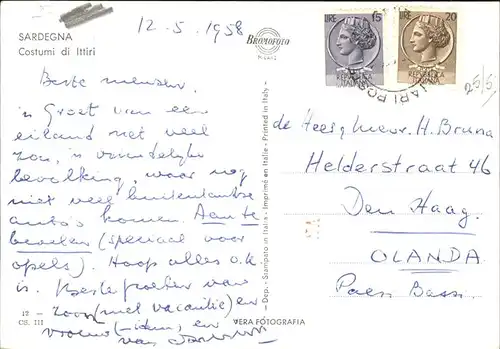 SARDEGNA
Costumi di Ittiri
12-5-1958
BROMOFOTO
MILANO
LIRE 15
REPUBBLICA
ITALIANA
LIRE 20
REPUBBLICA
ITALIANA
25/5
Beste mensen,
'n Groet van een
eiland met veel
zon, 'n vriendelijke
bevolking, waar nog
niet veel buitenlandse
auto's komen. Aan te
bevelen (speciaal voor
opels). Hoop alles o.k.
is. Beste groeten van
zoon (met vacantie) en
vrouw (-idem), en
van
de Heer H. Bruna
Helderstraat 46
Den Haag
OLANDA
Paesi Bassi
- Dep. - Stampato in Italia - Imprimé en Italie - Printed in Italy -
17
CS. III
VERA FOTOGRAFIA